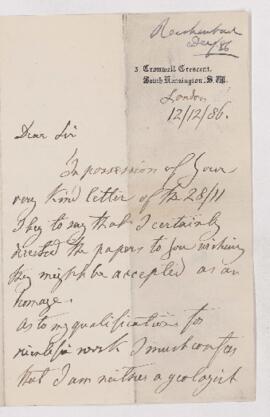 Reichenbach
Dec/86
3 Cromwell Crescent.
South Kensington. S.W.
London
12/12/86.
Dear Sir
In possession of your
very kind letter of the 28/11
I beg to say that I certainly
directed the papers to you wishing
they might be accepted as an
homage.
As to my qualifications for
work I must confess
that I am neither a geologist